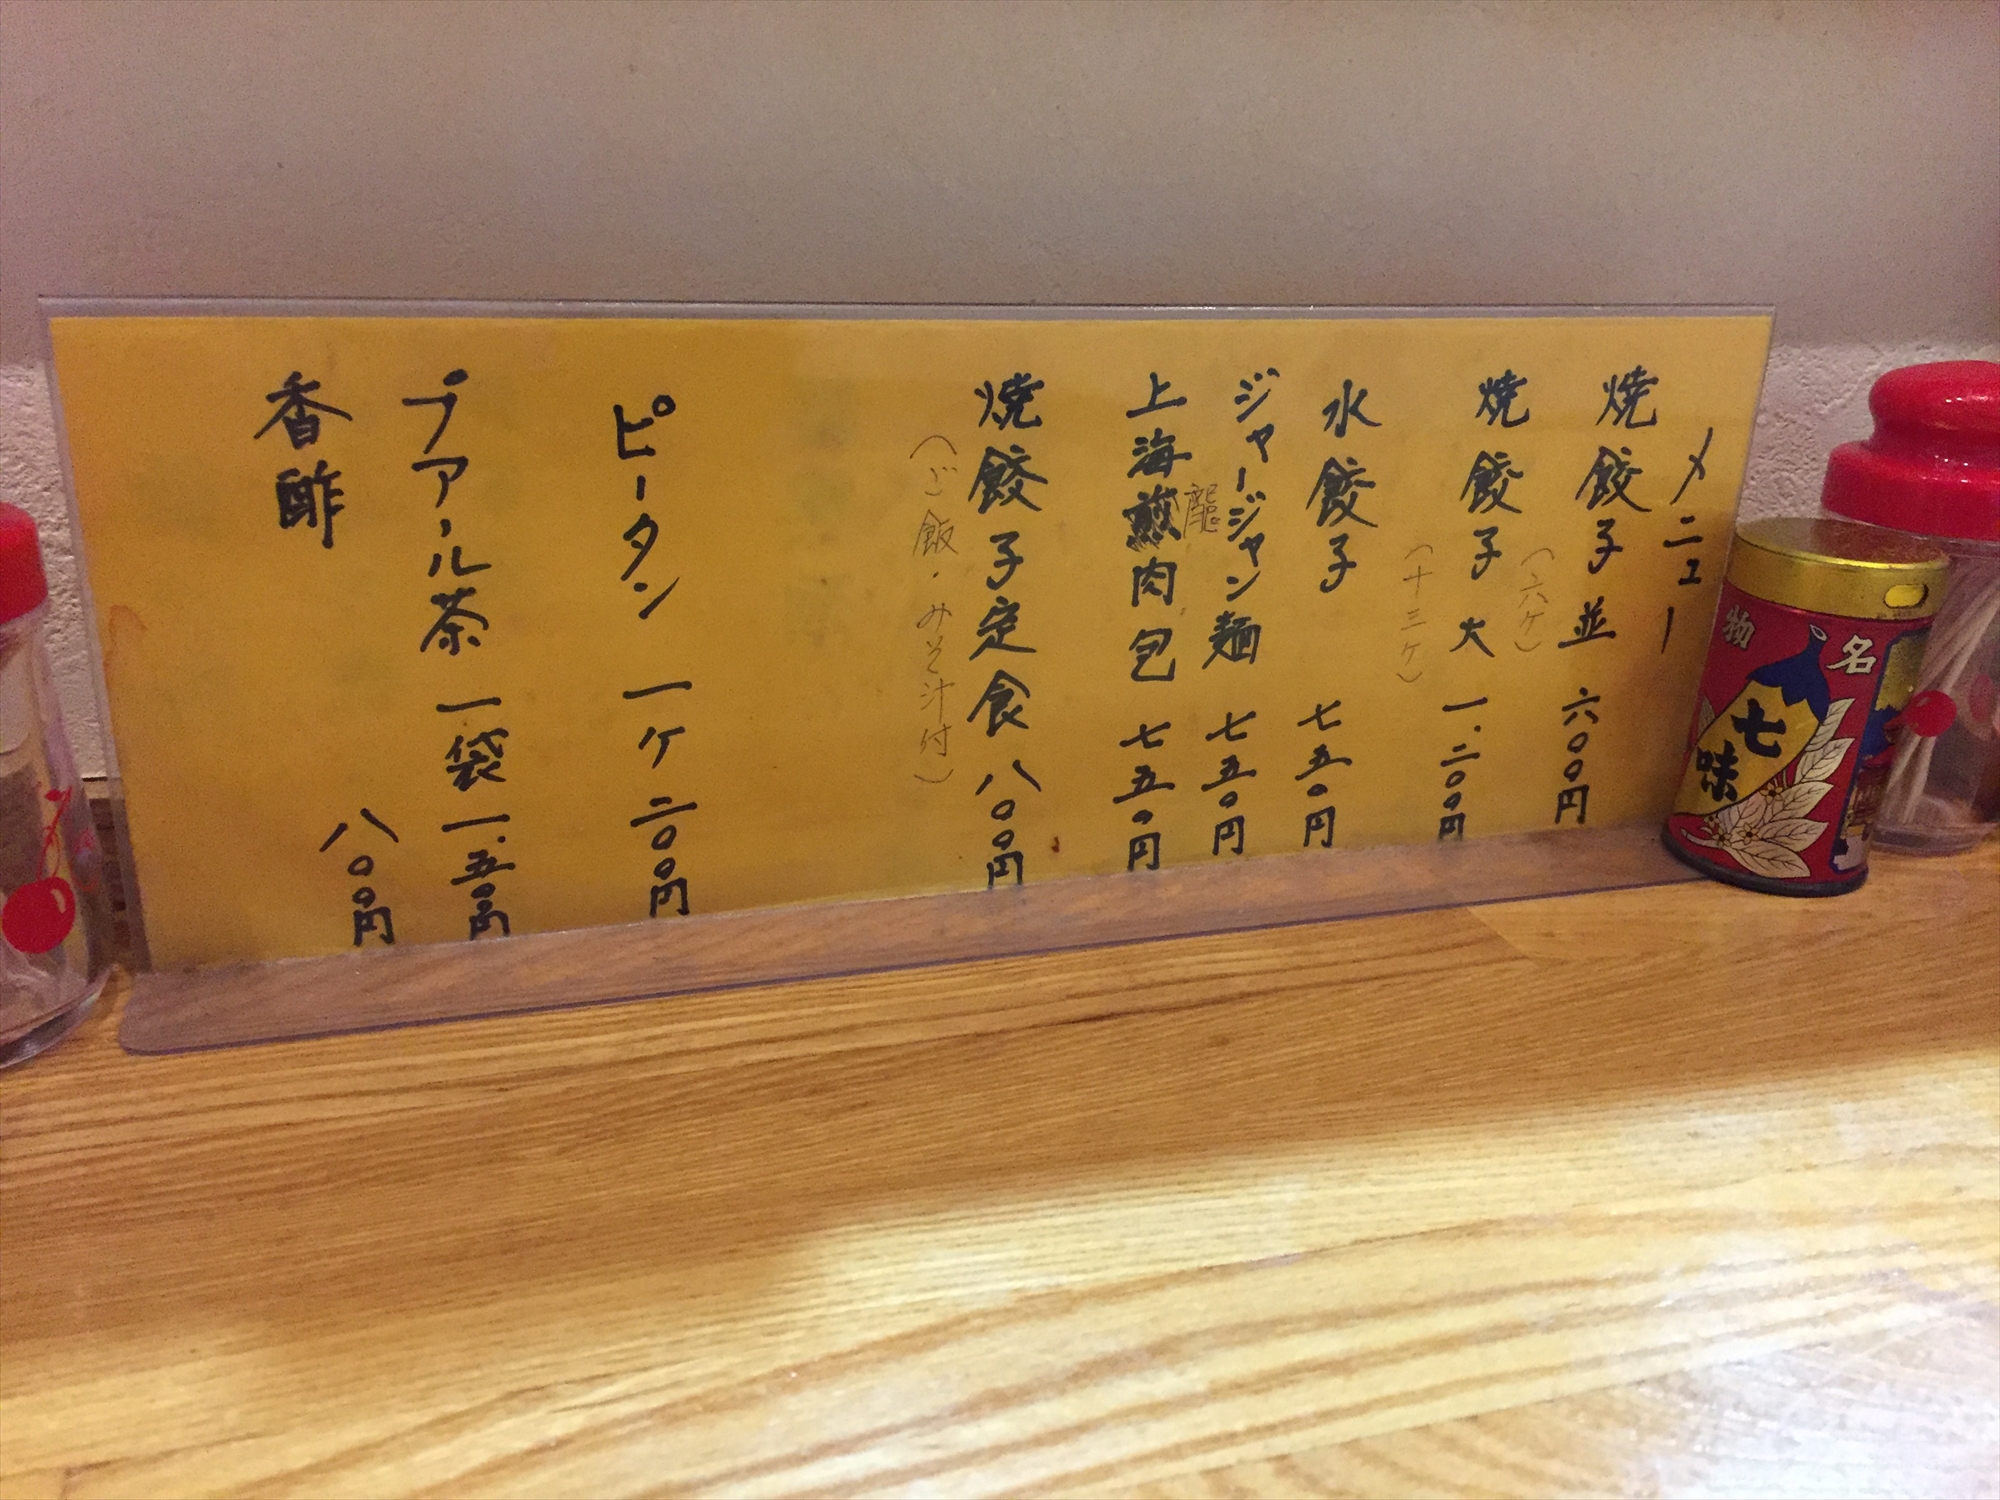 メニュー
焼餃子 並 六〇〇円
(六ケ)
焼餃子 大 一.二〇〇円
(十三ケ)
水餃子 七五〇円
ジャージャン麺 七五〇円
龍
上海肉包 七五〇円
焼餃子定食 八〇〇円
(ご飯・みそ汁付)
ピータン 一ケ 二〇〇円
プアール茶 一袋 一.五〇〇円
香酢 八〇〇円
名物
七味